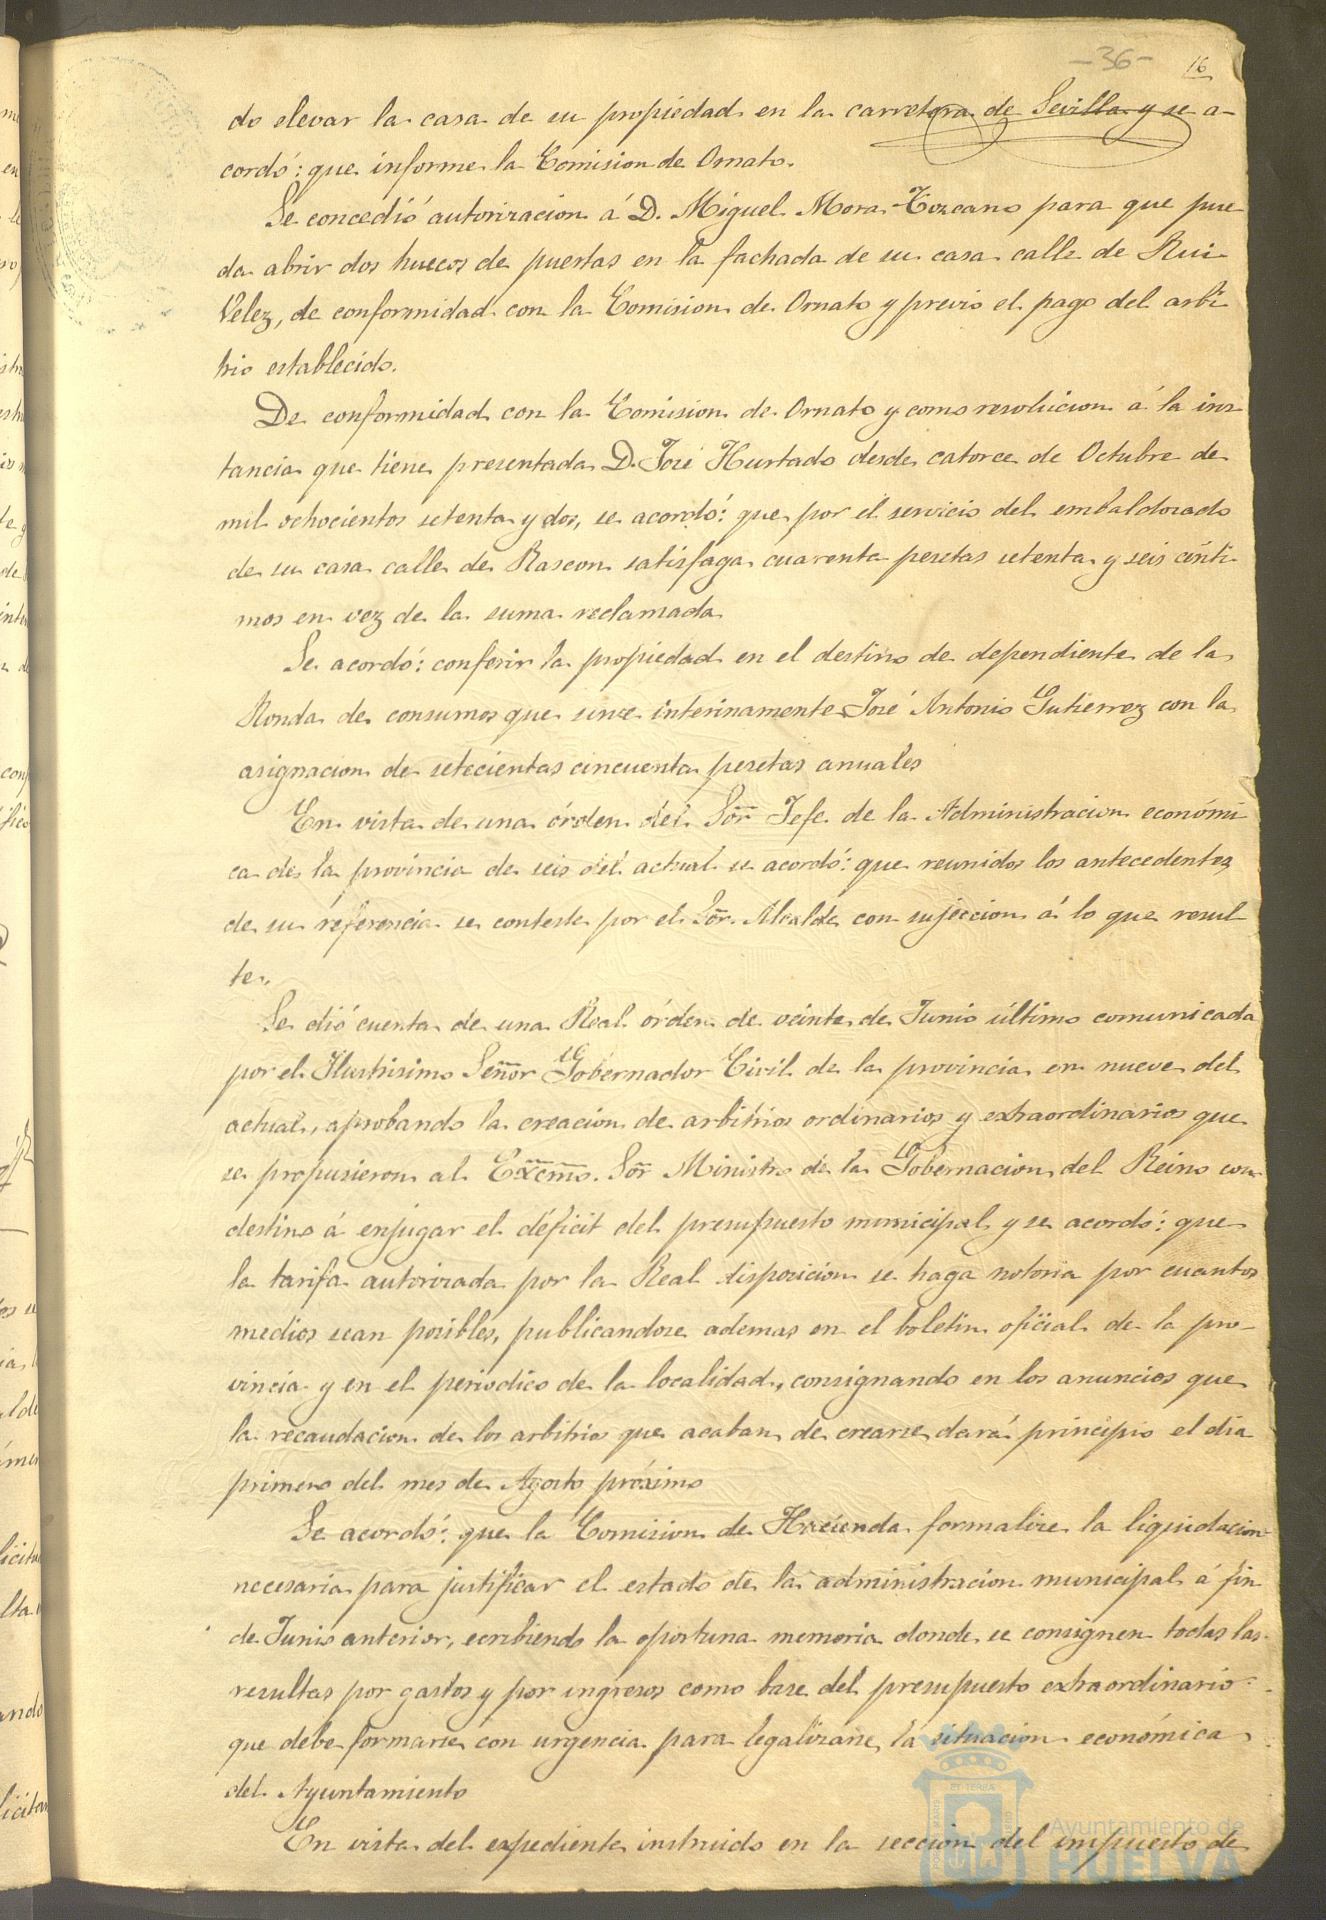 -36- 16
do elevar la casa de su propiedad en la carretera de Sevilla y se a-
cordó: que informe la Comision de Ornato.
Se concedió autorizacion á D. Miguel Mora Tozcano para que pue
da abrir dos huecos de puertas en la fachada de su casa calle de Rui
Velez, de conformidad con la Comision de Ornato y previo el pago del arbi
trio establecido.
De conformidad con la Comision de Ornato y como resolucion á la ins
tancia que tiene presentada D. José Hurtado desde catorce de Octubre de
mil ochocientos setenta y dos, se acordó: que por el servicio del embaldosado
de su casa calle de Rascon satisfaga cuarenta pesetas setenta y seis cénti
mos en vez de la suma reclamada
Se acordó: conferir la propiedad en el destino de dependiente de la
Ronda de consumos que sirve interinamente José Antonio Gutierrez con la
asignacion de setecientas cincuenta pesetas anuales
En vista de una órden del Sor Jefe de la Administracion económi
ca de la provincia de seis del actual se acordó: que reunidos los antecedentes
de su referencia se conteste por el Sor. Alcalde con sujeccion á lo que resul
te.
Se dió cuenta de una Real órden de veinte de Junio último comunicada
por el Ilustrisimo Señor Gobernador Civil de la provincia en nueve del
actual, aprobando la creacion de arbitrios ordinarios y extraordinarios que
se propusieron al Excmo. Sor Ministro de la Gobernacion del Reino con
destino á enjugar el déficit del presupuesto municipal y se acordó: que
la tarifa autorizada por la Real disposicion se haga notoria por cuantos
medios sean posibles, publicandose ademas en el boletin oficial de la pro-
vincia y en el periodico de la localidad, consignando en los anuncios que
la recaudacion de los arbitrios que acaban de crearse dará principio el dia
primero del mes de Agosto próximo
Se acordó: que la Comision de Hacienda formalize la liquidacion
necesaria para justificar el estado de la administracion municipal á fin
de Junio anterior, escribiendo la oportuna memoria donde se consignen todas las
resultas por gastos y por ingresos como base del presupuesto extraordinario
que debe formarse con urgencia para legalizarse la situacion económica
del Ayuntamiento
En vista del expediente instruido en la seccion del impuesto de
Ayuntamiento de
HUELVA